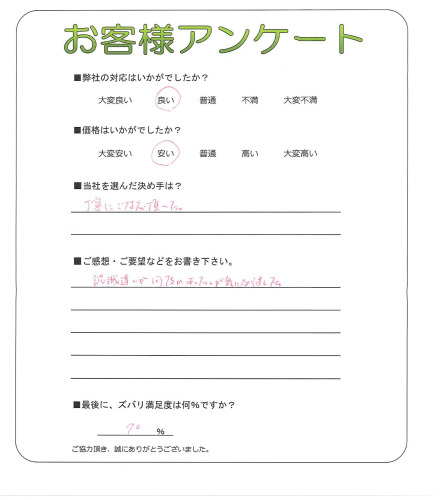 お客様アンケート
■弊社の対応はいかがでしたか？
大変良い 良い 普通 不満 大変不満
■価格はいかがでしたか？
大変安い 安い 普通 高い 大変高い
■当社を選んだ決め手は？
丁寧にご対応頂いた。
■ご感想・ご要望などをお書き下さい。
認識違いが 気になりました。
■最後に、ズバリ満足度は何％ですか？
70 ％
ご協力頂き、誠にありがとうございました。